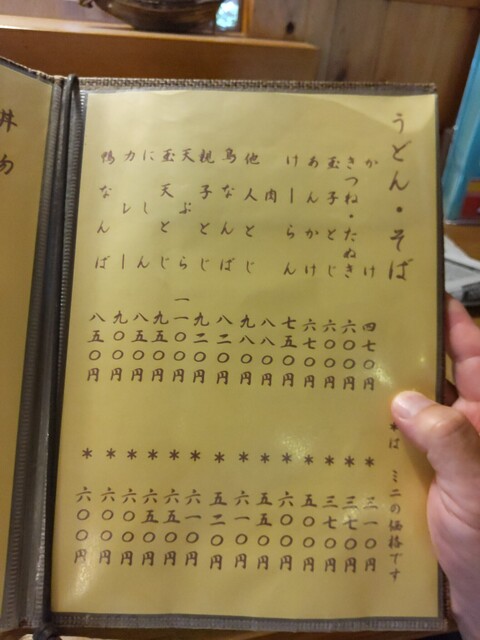 うどん・そば
*は ミニの価格です
かけ 四七〇円 * 三一〇円
きつね・たぬき 六〇〇円 * 三七〇円
玉子とじ 六〇〇円 * 三七〇円
あんかけ 六七〇円 * 五〇〇円
けーらん 七五〇円 * 六〇〇円
肉 八八〇円 * 五五〇円
他人とじ 九八〇円 * 六一〇円
鳥なんば 八二〇円 * 五二〇円
親子とじ 九二〇円 * 六一〇円
天ぷら 一一〇〇円 * 六五〇円
玉天とじ 九五〇円 * 六五〇円
にしん 八五〇円 * 六〇〇円
カレー 九〇〇円 * 六〇〇円
鴨なんば 八五〇円 * 六〇〇円